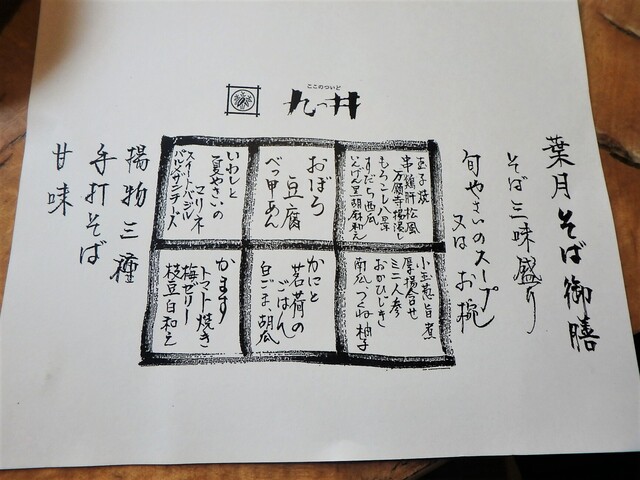 ここのついど
九つ井
葉月そば御膳
そば三味盛り
旬やさいのスープ
又は お椀
玉子焼
串鶏肝松風
万願寺揚浸し
もろこし八幡
すだち西瓜
いんげん豆胡麻和え
おぼろ
豆腐
べっ甲あん
いわしと
夏やさいの
マリネ
スイートバジル
パルメザンチーズ
小玉葱旨煮
厚揚合せ
ミニ人参
おかひじき
南瓜つくね柚子
かにと
茗荷の
ごはん
白ごま、胡瓜
かます
トマト焼き
梅ゼリー
枝豆白和え
揚物三種
手打そば
甘味